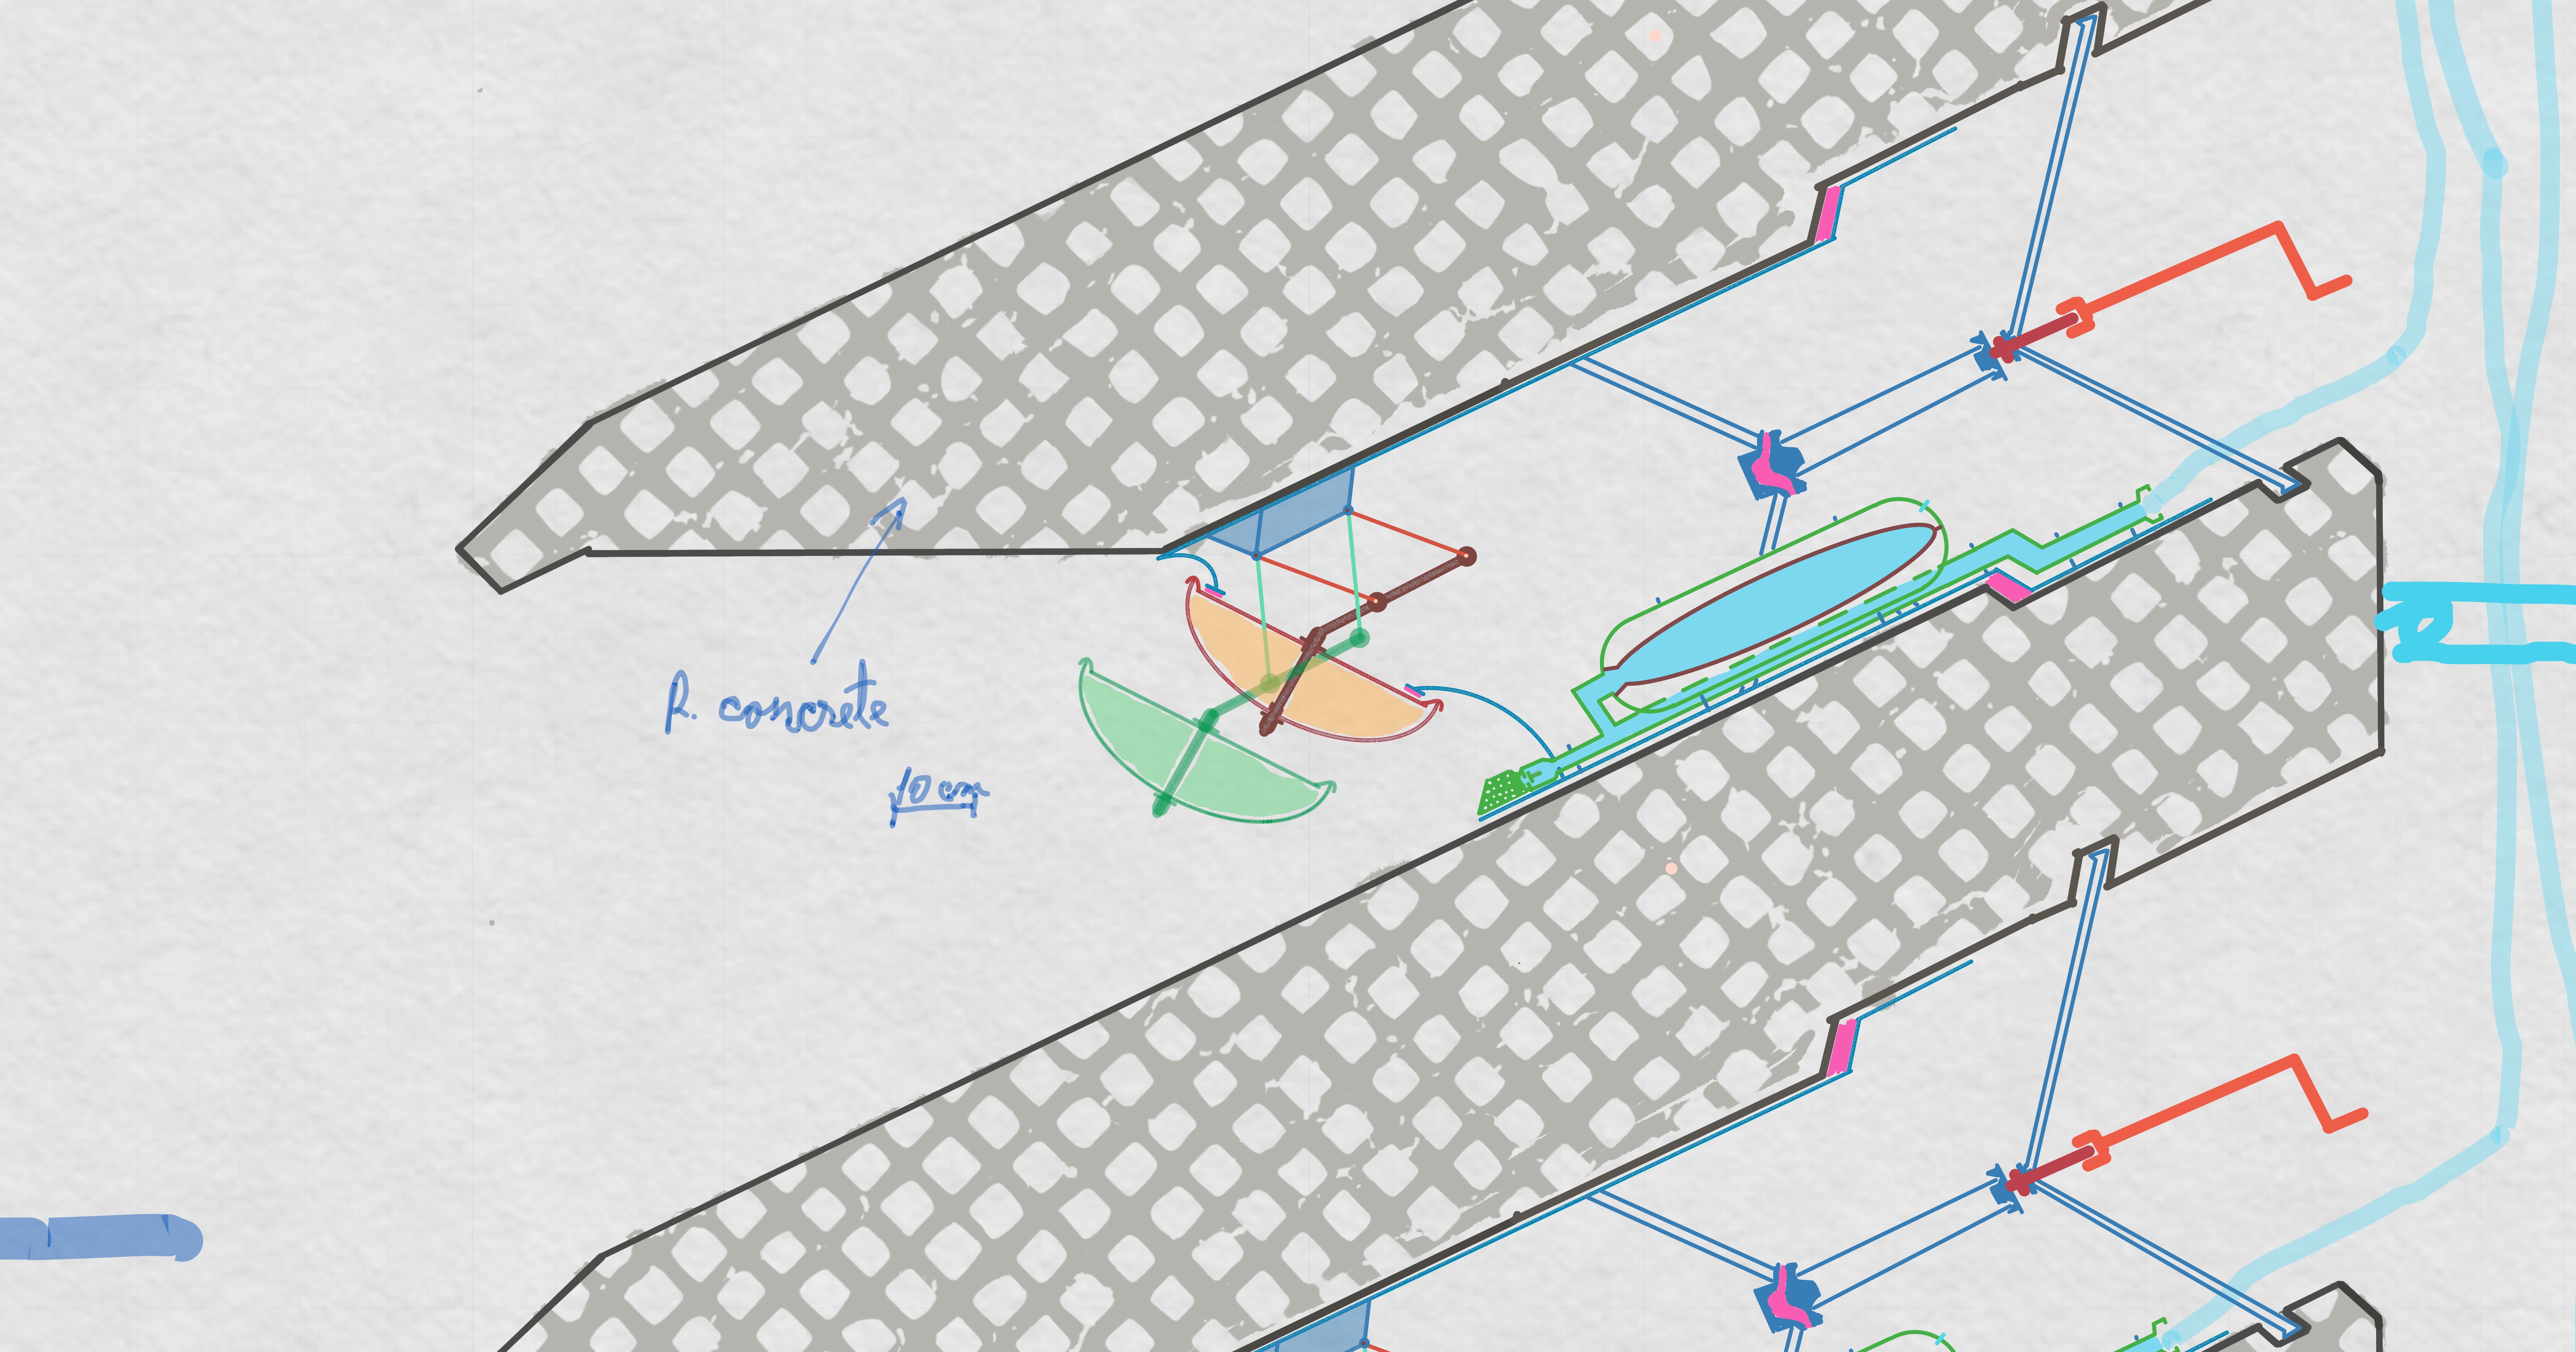 R. concrete
10 cm